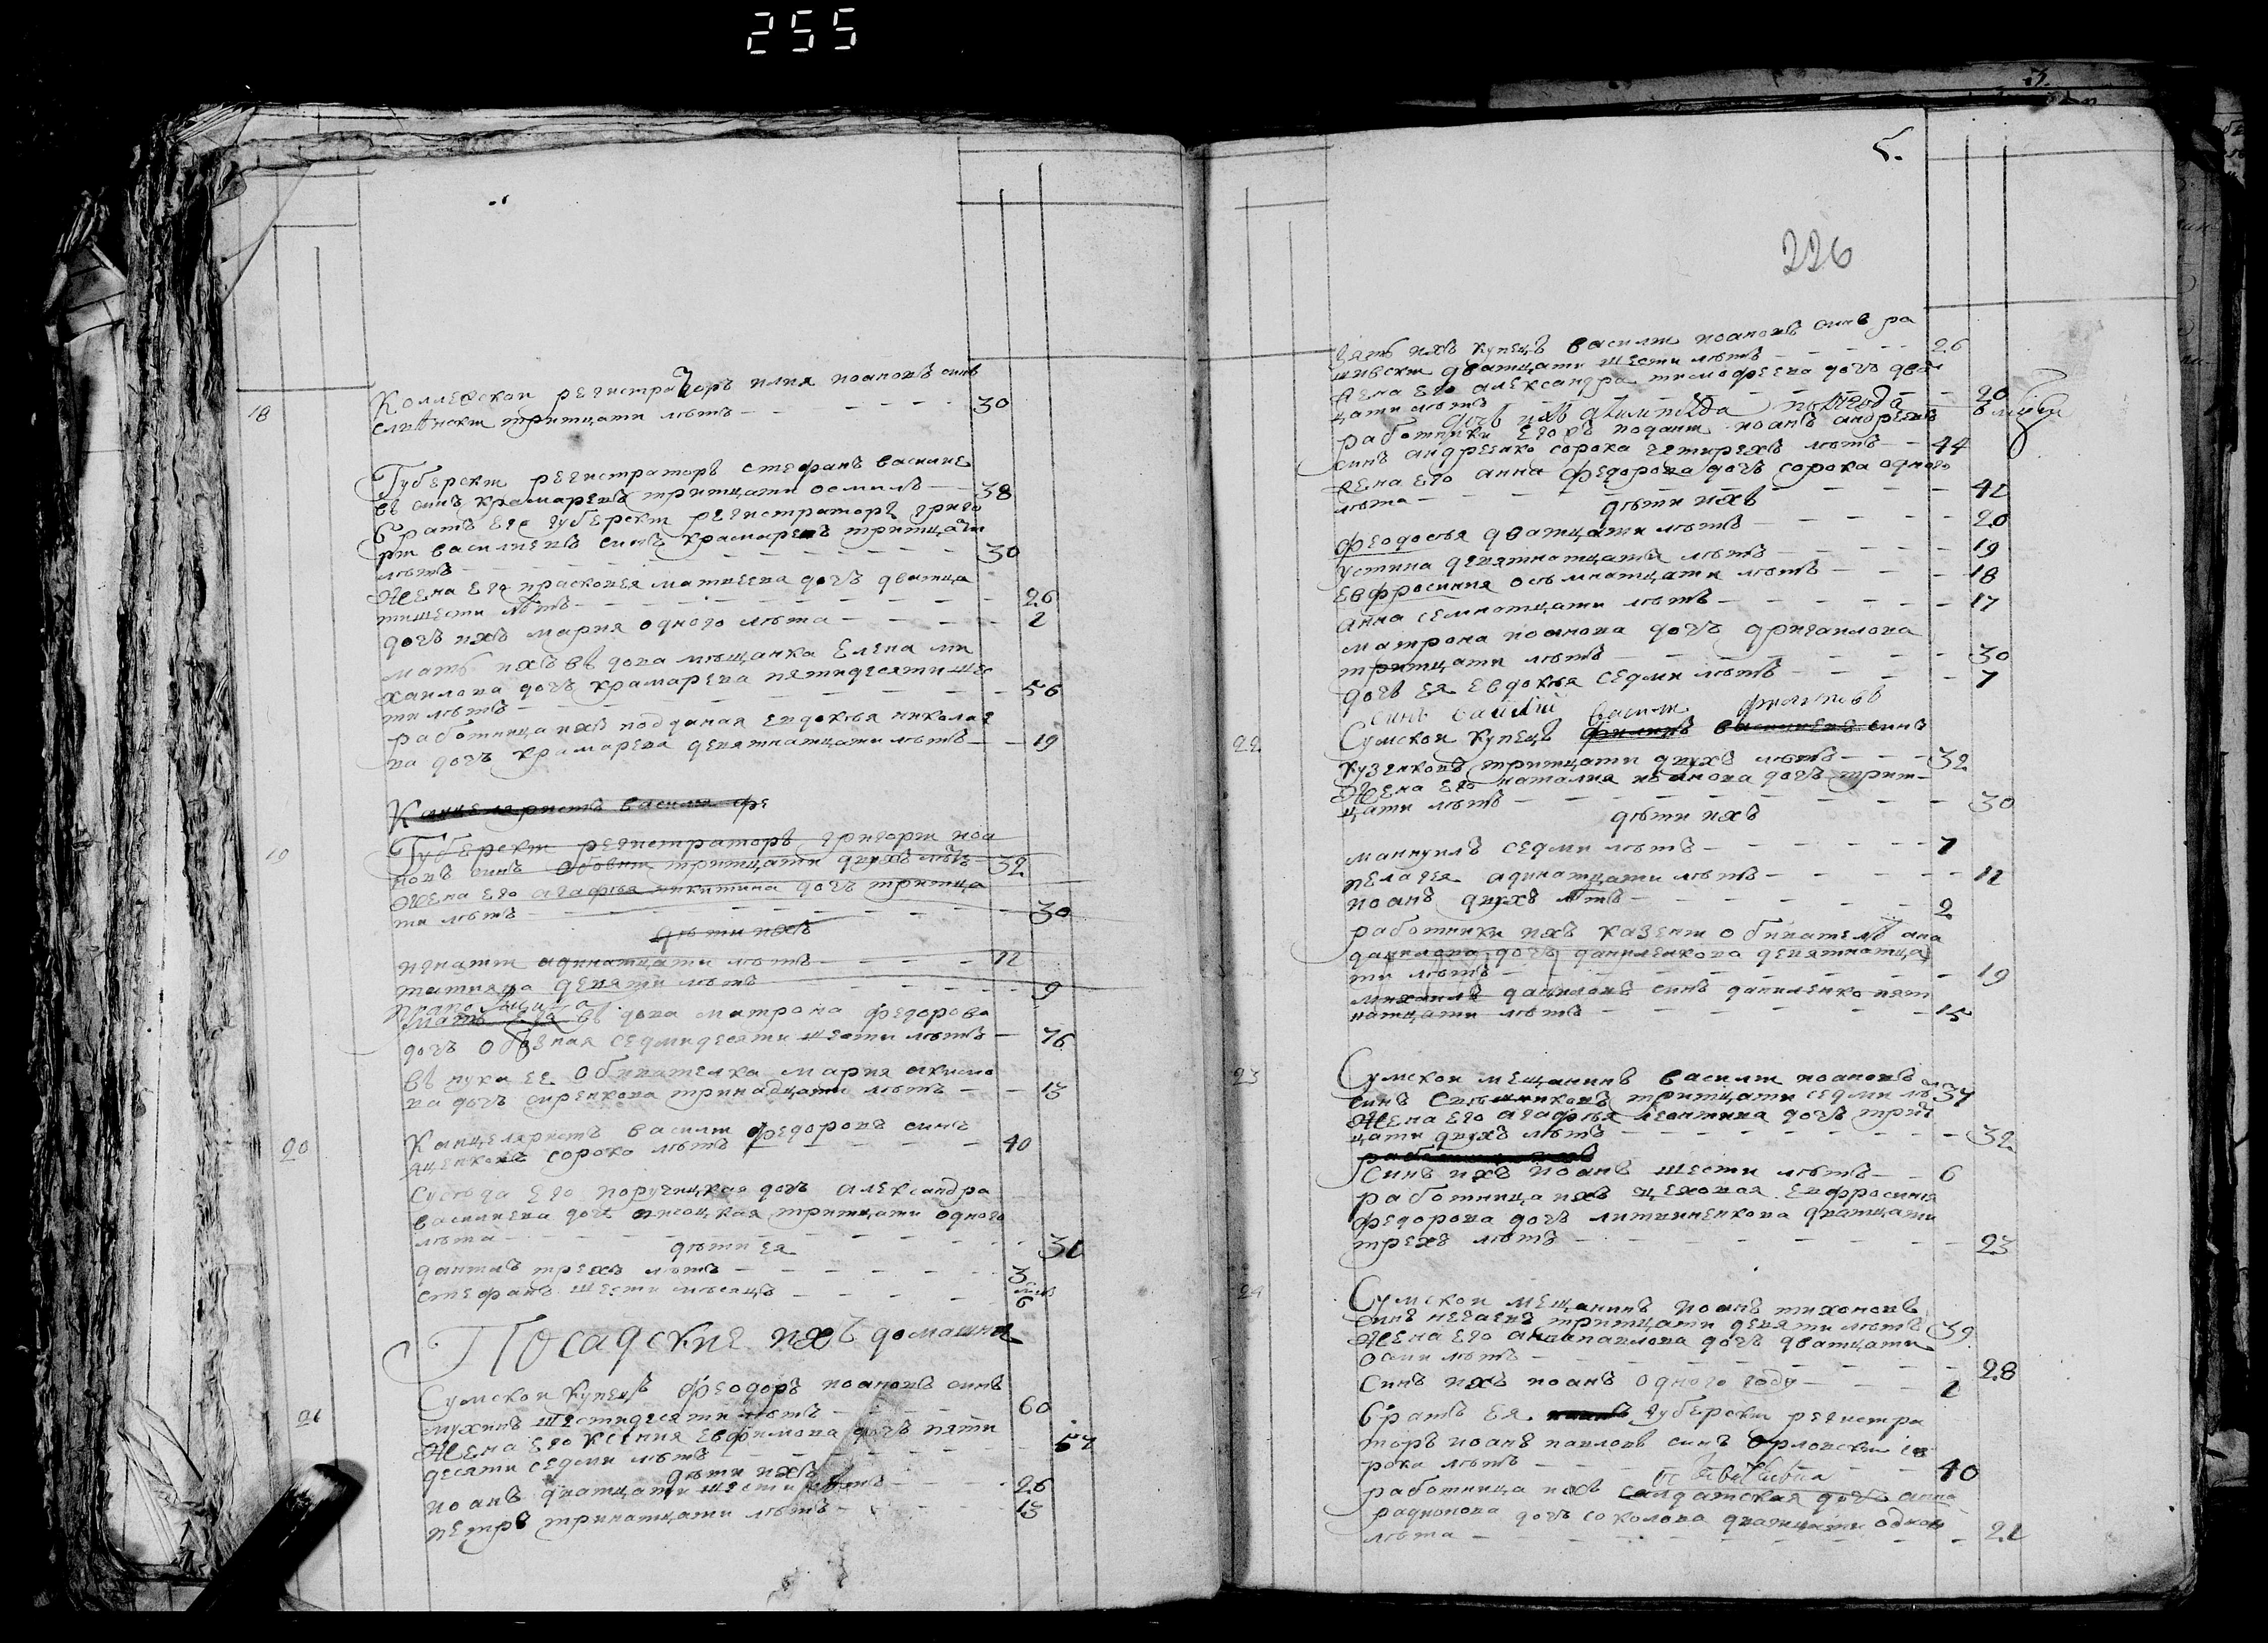 255
18
Коллежскои регистраторъ илия иоановъ синъ
тритцати летъ 30
Губерскии регистраторъ стефанъ василие
въ синъ крамаревъ тритцати осми летъ 38
Братъ его губерскии регистраторъ григо
рии василиевъ синъ крамаревъ тритцати
летъ 30
Жена его прасковея матвеева дочъ дватца
тишести летъ 26
дочъ ихъ мария одного лета 1
мать ихъ вдова мещанка Елена ми
хаилова дочъ крамарева пятидесяти шес
ти летъ 56
работница ихъ подданая евдокия никола
ва дочъ крамарева девятнатцати летъ 19
Канцеляристъ василии фе
19
Губерскии регистраторъ григории иоа
новъ синъ тритцати двухъ летъ 32
Жена его агафия никитина дочъ тритца
ти летъ 30
дети ихъ
игнатии адинатцати летъ 11
татияна девяти летъ 9
вдова матрона федорова
дочъ седмидесяти шести летъ 76
внука ее обивателка мария
ва дочъ тринадцати летъ 13
20
Канцеляристъ василии федоровъ синъ
яценковъ сорока летъ 40
Суседа его поручицкая дочъ александра
василиева дочъ тритцати одного
лета 31
дети ея
даниилъ трехъ летъ 3
стефанъ шести месяцъ 6
Посадские ихъ домашни
21
Сумскои купецъ феодоръ иоановъ синъ
мухинъ шестидесяти летъ 60
Жена его ксения евфимова дочъ пяти
десяти седми летъ 57
дети ихъ
иоанъ дватцати шести летъ 26
петръ тринатцати летъ 13
3.
5.
226
Зять ихъ купецъ василии иоановъ синъ ра
дватцати шести летъ 26
Жена его александра тимофеева дочъ два
цати летъ 20
дочъ ихъ
работники его подани иоанъ андреевъ
синъ андреенко сорока четирехъ летъ 44
Жена его анна федорова дочъ сорока одного
лета 41
дети ихъ
феодосия дватцати летъ 20
устина девятнатцати летъ 19
евфросиния осьмнатцати летъ 18
анна семнатцати летъ 17
матрона иоанова дочъ
тритцати летъ 30
дочъ ея евдокия седми летъ 7
василии
22
Сумскои купецъ филипъ василиевъ синъ
кузенковъ тритцати двухъ летъ 32
Жена его наталия иванова дочъ трит
цати летъ 30
дети ихъ
мануилъ седми летъ 7
пелагея адинатцати летъ 11
иоанъ двухъ летъ 2
работники ихъ казени обиватели ана
данилова дочъ даниленкова девятнатца
ти летъ 19
михаилъ даниловъ синъ даниленко пят
натцати летъ 15
23
Сумскои мещанинъ василии иоановъ
синъ тритцати седми ле 37
Жена его агафия леонтиева дочъ трит
цати двухъ летъ 32
Синъ ихъ иоанъ шести летъ 6
работница ихъ цеховая евфросиния
федорова дочъ литвиненкова дватцати
трехъ летъ 23
24
Сумскои мещанинъ иоанъ тихоновъ
синъ нечаевъ тритцати девяти летъ 39
Жена его анна павлова дочъ дватцати
осми летъ 28
Синъ ихъ иоанъ одного году 1
братъ ея губерскии регистра
торъ иоанъ павловъ синъ орловскии со
рока летъ 40
работница ихъ салдатская дочъ анна
радионова дочъ соколова дватцати одного
лета 21